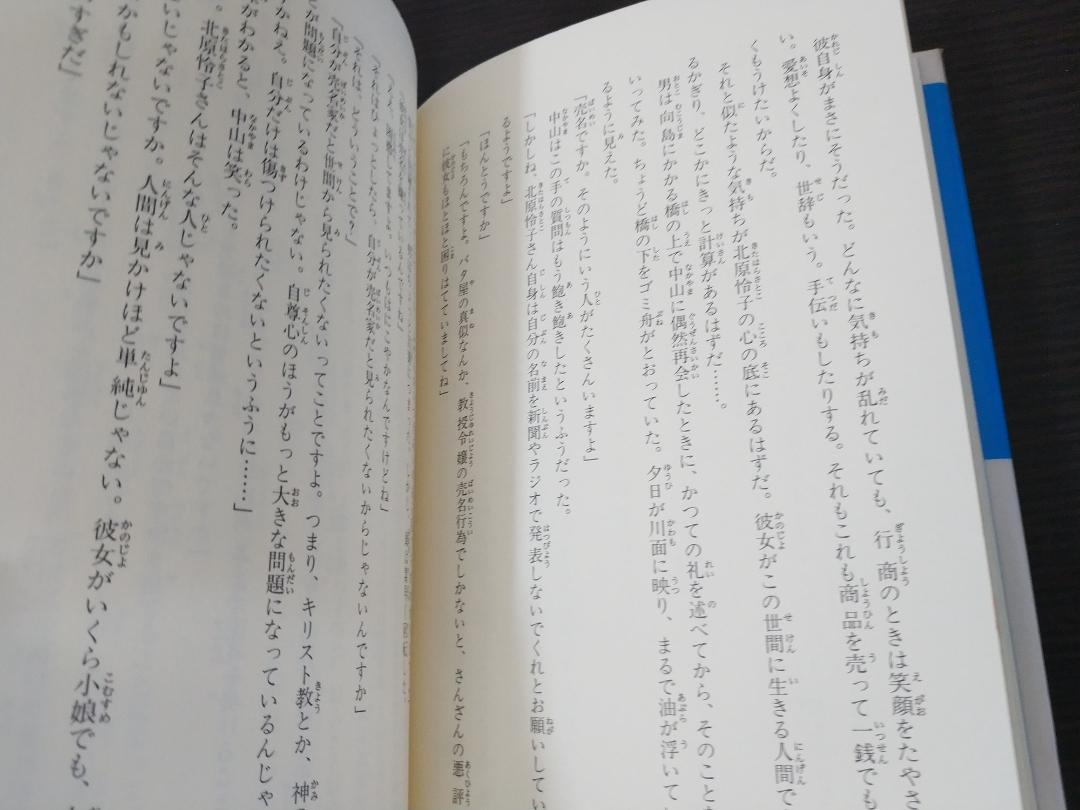 彼自身がまさにそうだった。どんなに気持ちが乱れていても、行商のときは笑顔をたやさ
い。愛想よくしたり、世辞もいう。手伝いもしたりする。それもこれも商品を売って一銭でも
くもうけたいからだ。
それと似たような気持ちが北原怜子の心の底にあるはずだ。彼女がこの世間に生きる人間で
るかぎり、どこかにきっと計算があるはずだ……。
男は向島にかかる橋の上で中山に偶然再会したときに、かつての礼を述べてから、そのこと
いってみた。ちょうど橋の下をゴミ舟がとおっていた。夕日が川面に映り、まるで油が浮いて
るように見えた。
「売名ですか。そのようにいう人がたくさんいますよ」
中山はこの手の質問はもう飽き飽きしたというふうだった。
「しかしね、北原怜子さん自身は自分の名前を新聞やラジオで発表しないでくれとお願いしてい
るようですよ」
「ほんとうですか」
「もちろんですよ。バタ屋の真似なんか、教授令嬢の売名行為でしかないと、さんざんの悪評
に彼女もほとほと困りはてていましてね」
「それはひょっとしたら、自分が売名家だと見られたくないからじゃないんですか」
「それは、どういうことで？」
「自分が売名家だと世間から見られたくないってことですよ。つまり、キリスト教とか、神
が問題になっているわけじゃない。自尊心のほうがもっと大きな問題になっているんじゃ
すかねえ。自分だけは傷つけられたくないというふうに……」
がわかると、中山は笑った。
北原怜子さんはそんな人じゃないですよ」
いじゃないですか。人間は見かけほど単純じゃない。彼女がいくら小娘でも、
かもしれないじゃないですか」
すぎだ」